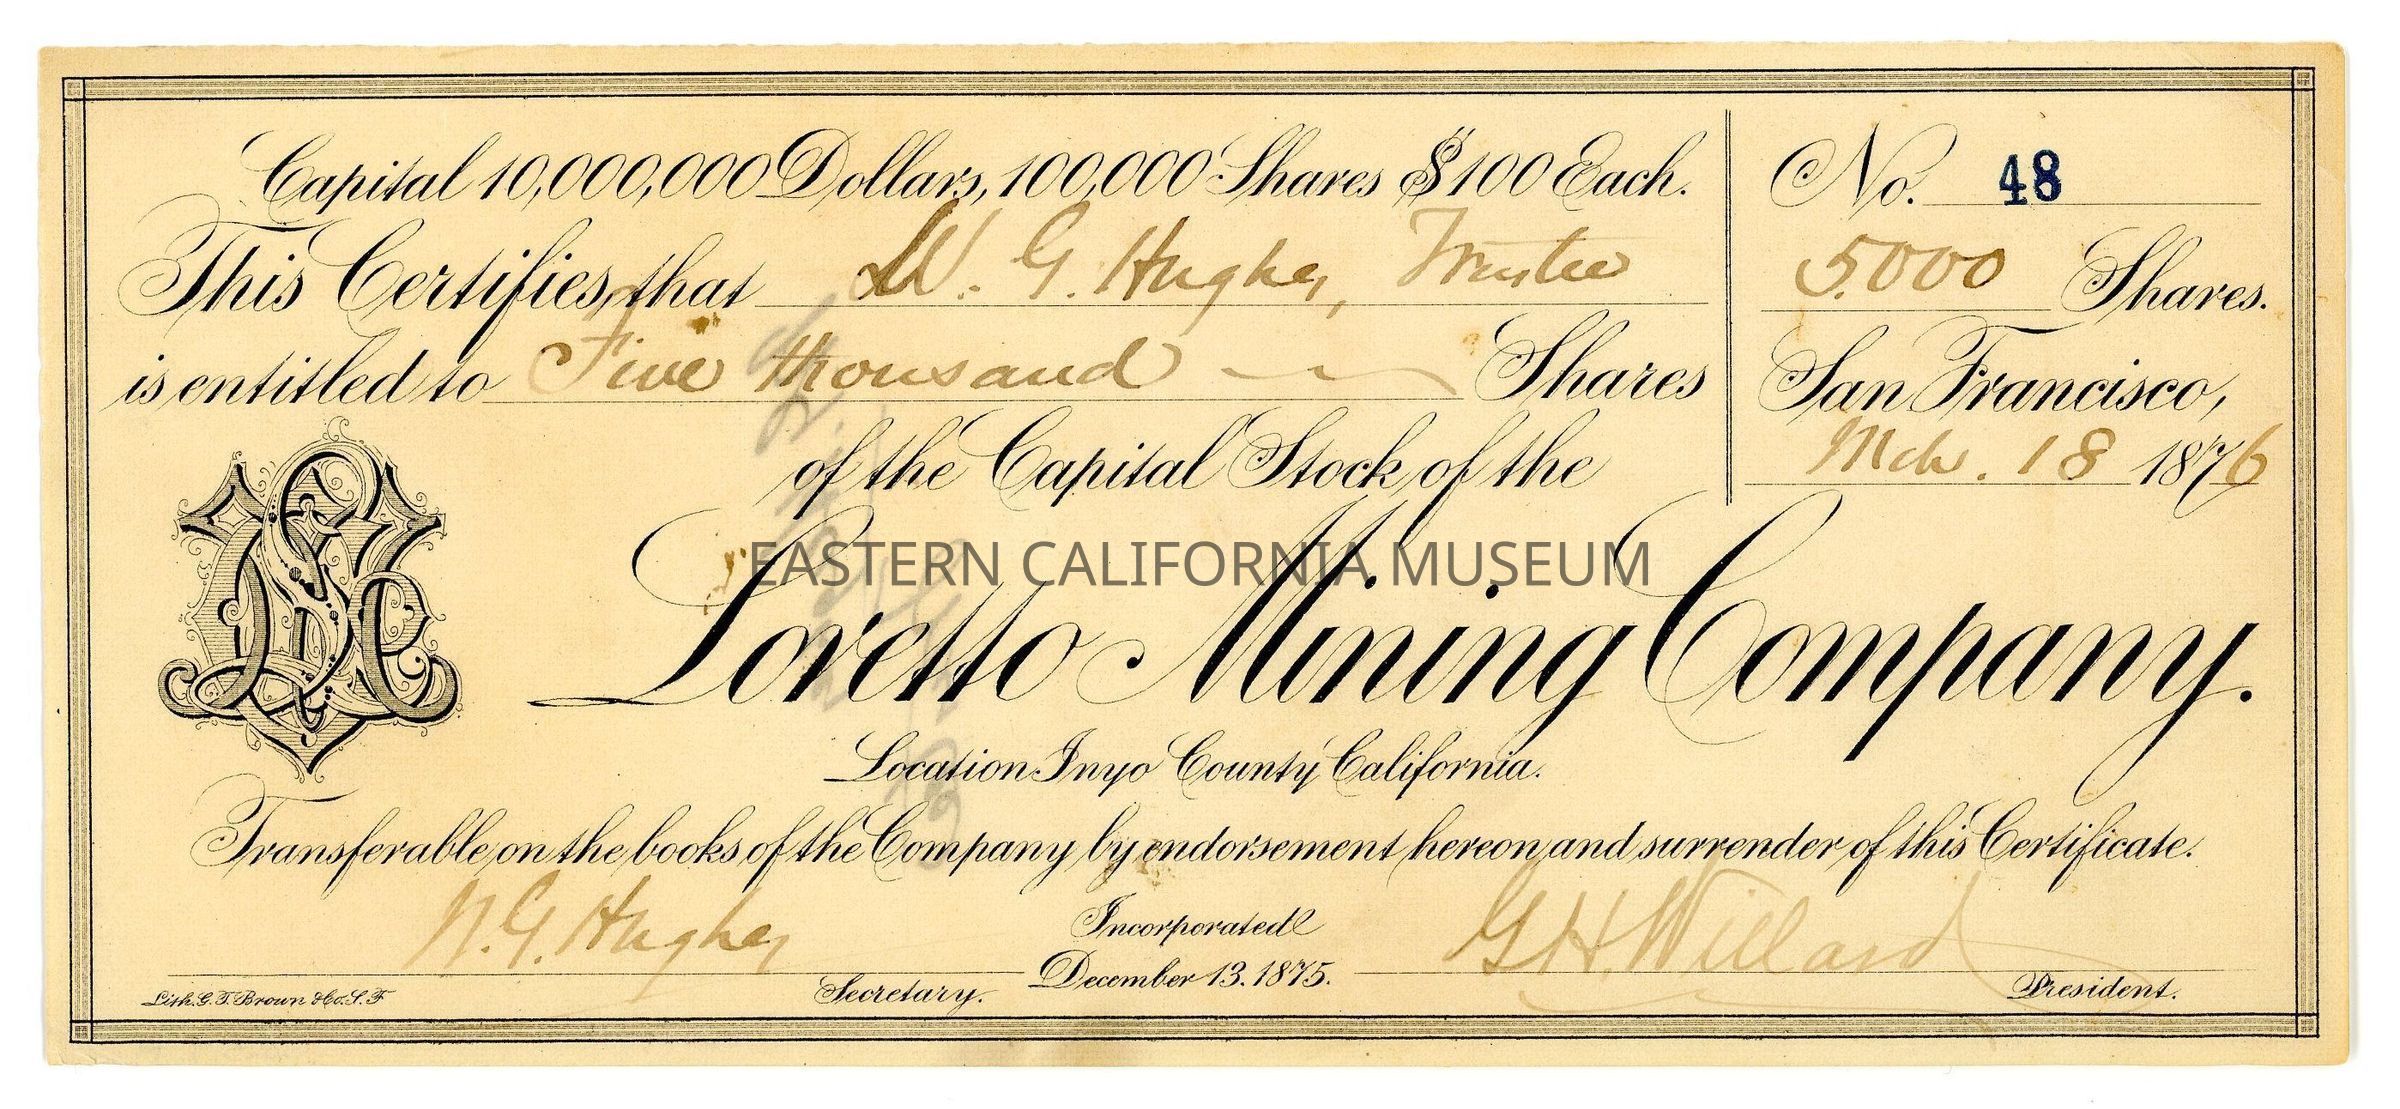 Capital 10,000,000 Dollars, 100,000 Shares $100 Each.
This Certifies, that W. G. Hughes, Trustee
is entitled to Five thousand Shares
of the Capital Stock of the
Loretto Mining Company.
Location Inyo County California.
Transferable on the books of the Company by endorsement hereon and surrender of this Certificate.
No. 48
5.000 Shares.
San Francisco,
Mch. 18 1876
EASTERN CALIFORNIA MUSEUM
N. G. Hughes
Secretary.
Incorporated
December 13. 1875.
G H Willard
President.
Lith. G. T. Brown & Co. S. F